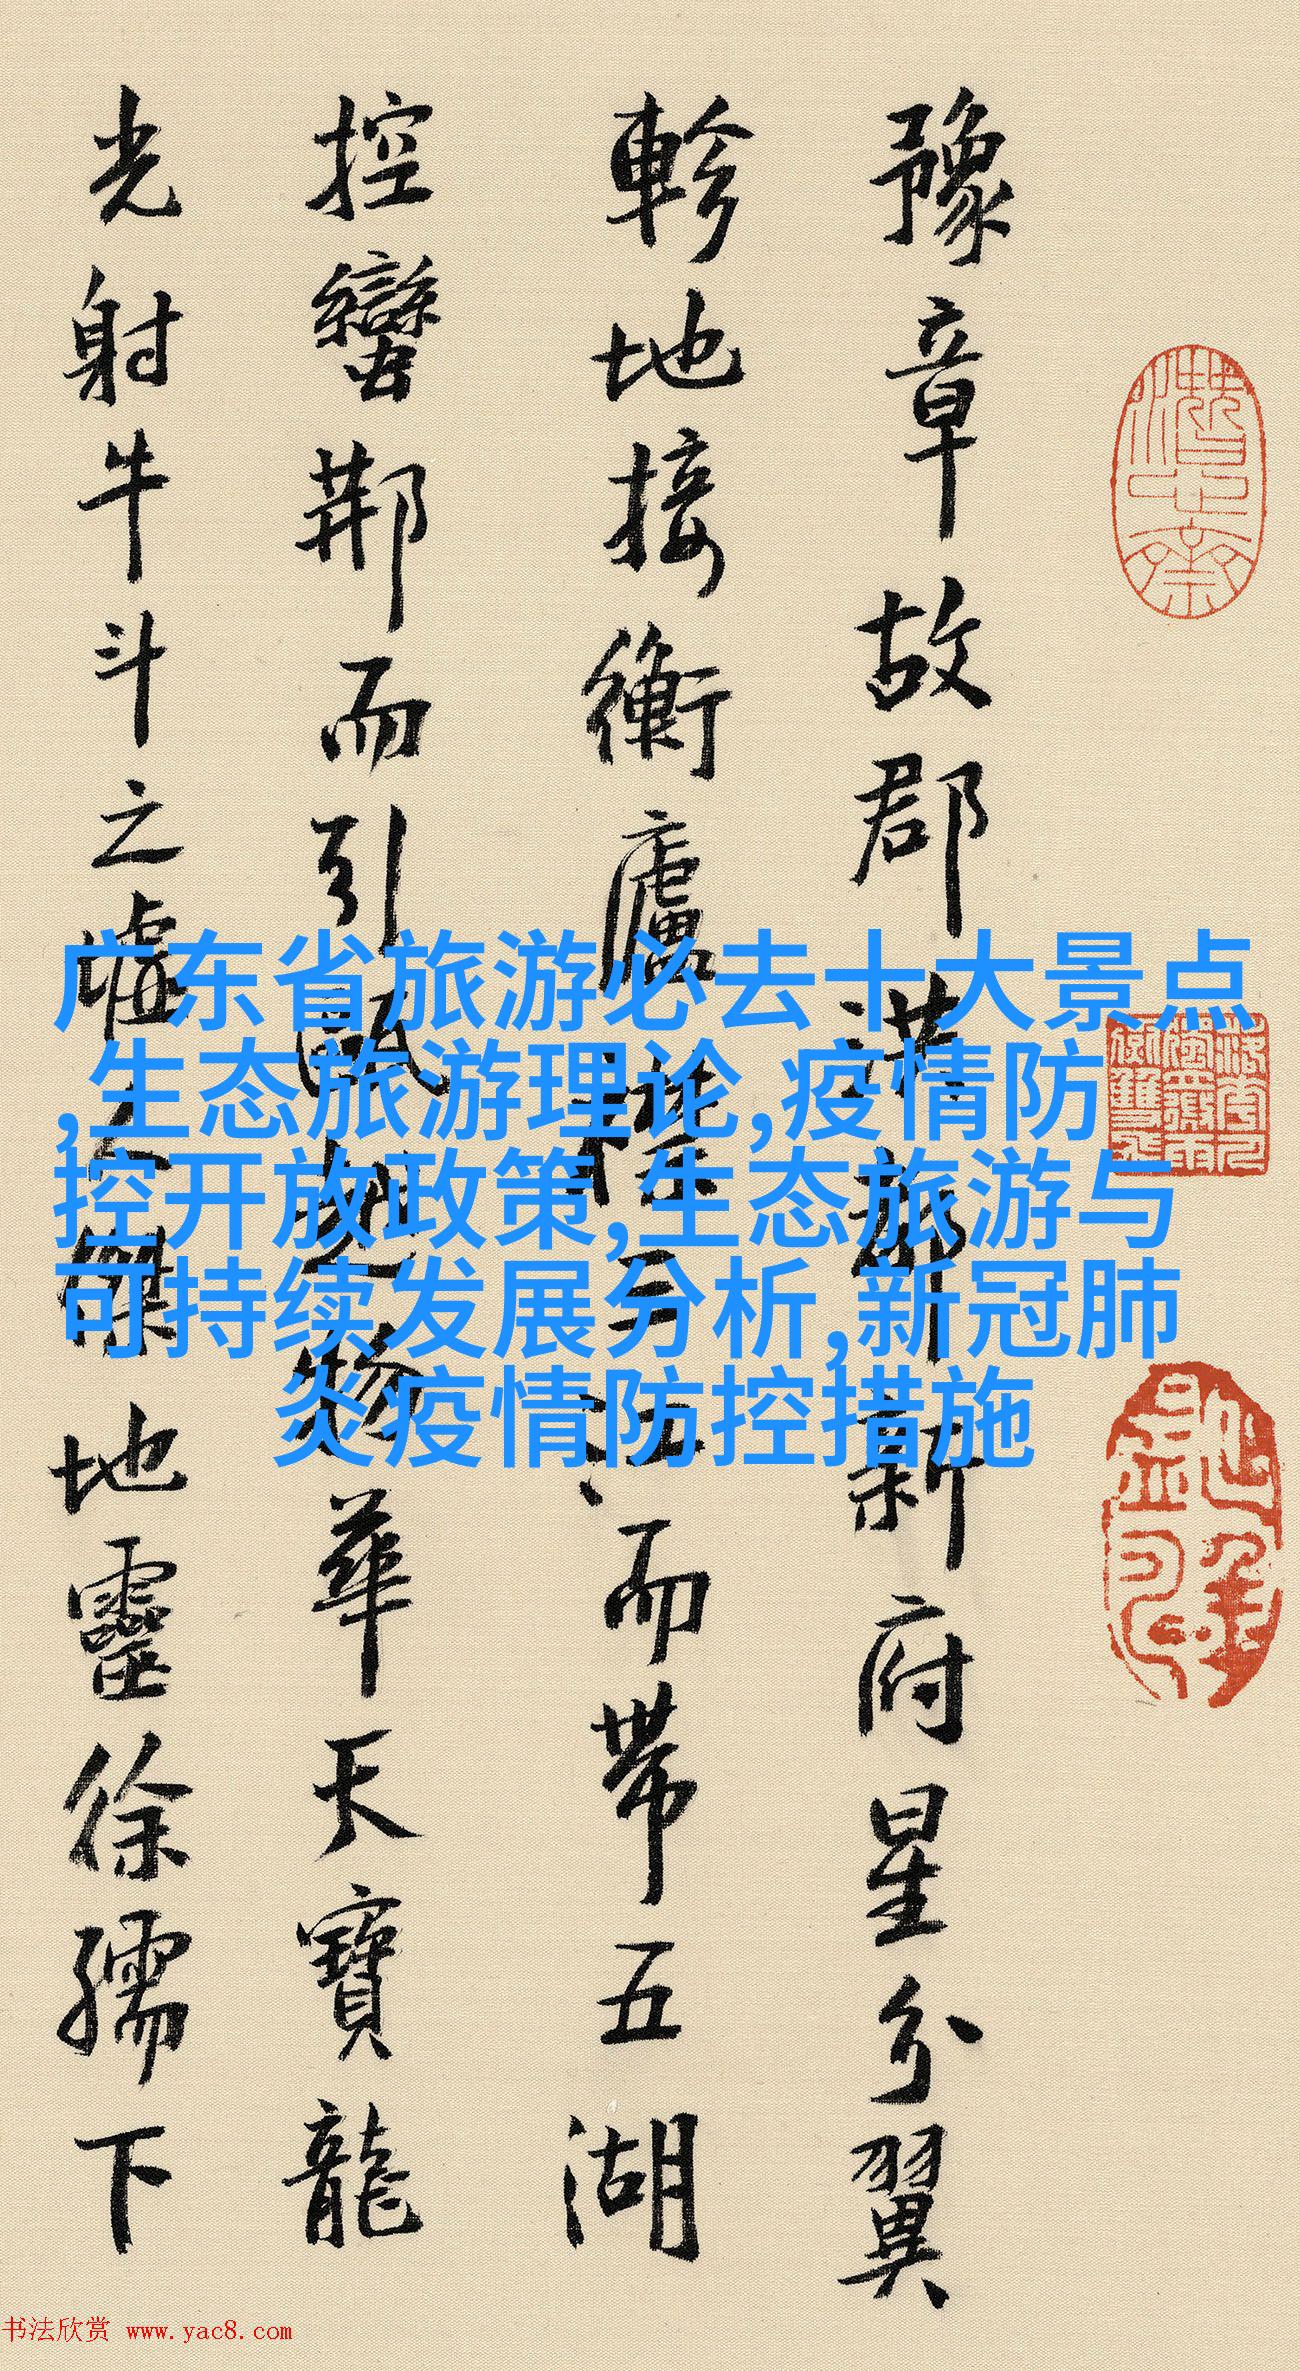 豫章故郡洪都新府星分翼
軫地接衡廬襟三江而帶五湖
控蠻荆而引甌越物華天寶龍
光射牛斗之墟人傑地靈徐孺下
广东省旅游必去十大景点
,生态旅游理论,疫情防
控开放政策,生态旅游与
可持续发展分析,新冠肺
炎疫情防控措施
书法欣赏 www.yac8.com